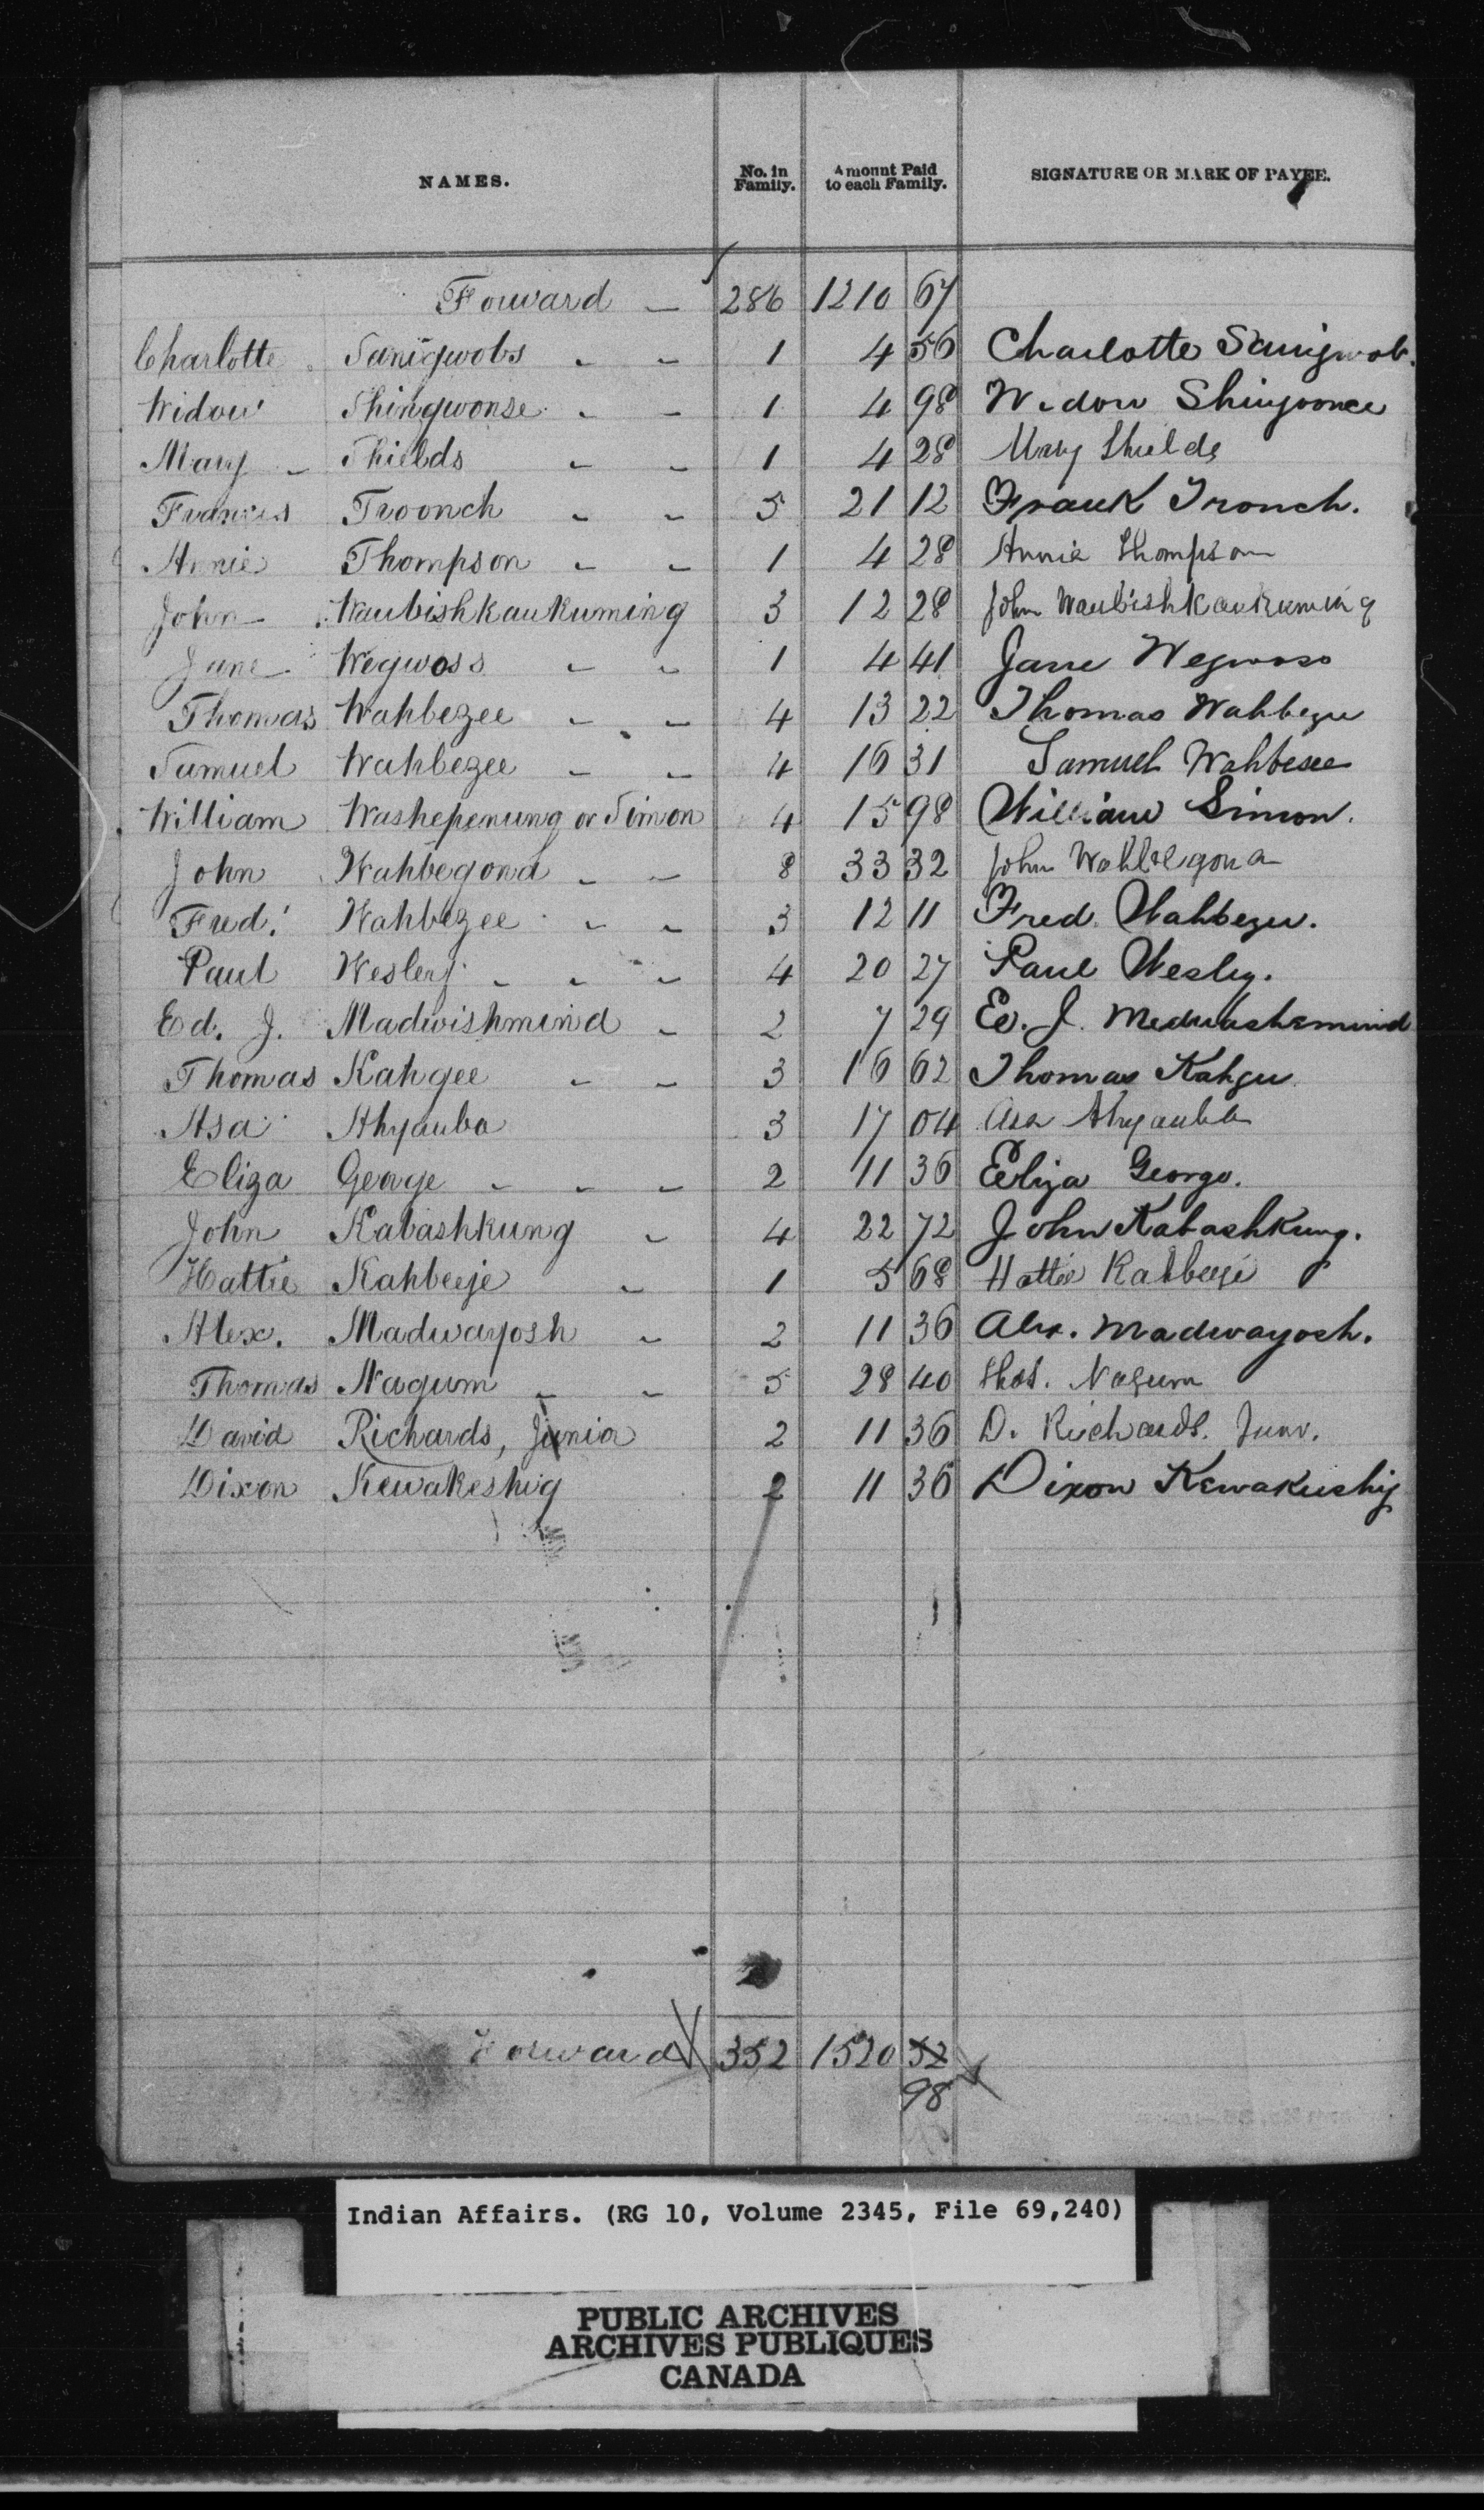 NAMES. No. in Family. Amount Paid to each Family. SIGNATURE OR MARK OF PAYEE.
Forward — 286 1210 67
Charlotte Sanigwobs - - 1 4 56 Charlotte Sanigwob.
Widow Shingwonse - - 1 4 98 Widow Shingwonce
Mary - Shields - - 1 4 28 Mary Shields
Francis Troonch - - 5 21 12 Frank Tronch.
Annie Thompson - - 1 4 28 Annie Thompson
John Waubishkaukuming 3 12 28 John Waubishkaukuming
Jane Wegwoss - - 1 4 41 Jane Wegwoss
Thomas Wahbezee - - 4 13 22 Thomas Wahbezee
Samuel Wahbezee - - 4 16 31 Samuel Wahbesee
William Washepenung or Simon 4 15 98 William Simon.
John Wahbegond - - 8 33 32 John Wahbegona
Fred. Wahbezee - - 3 12 11 Fred. Wahbezee.
Paul Wesley - - - 4 20 27 Paul Wesley.
Ed. J. Madwishmind - 2 7 29 Ed. J. Medwashemind
Thomas Kahgee - - 3 16 62 Thomas Kahgee
Asa Ahyauba 3 17 04 Asa Ahyaubb
Eliza George - - - 2 11 36 Eliza George.
John Kabashkung - 4 22 72 John Kabashkung.
Hattie Kahbeeje - 1 5 68 Hattie Kahbeeje
Alex. Madwayosh - 2 11 36 Alex. Madwayosh.
Thomas Nagum - - 5 28 40 Thos. Nagum
David Richards, Junior 2 11 36 D. Richards. Junr.
Dixon Kewakeshig 2 11 36 Dixon Kewakeeshig
Forward 352 1520 52
98
Indian Affairs. (RG 10, Volume 2345, File 69,240)
PUBLIC ARCHIVES
ARCHIVES PUBLIQUES
CANADA